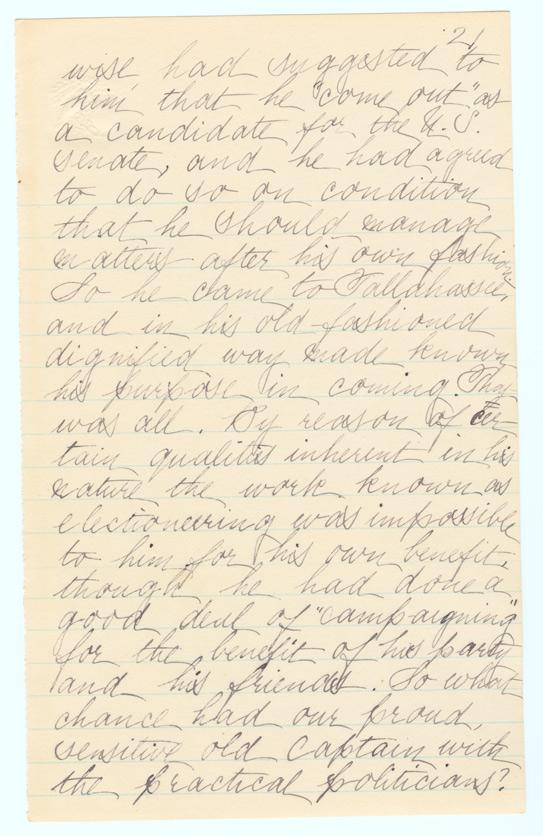 21
wise had suggested to
him that he "come out" as
a candidate for the U. S.
Senate, and he had agreed
to do so on condition
that he should manage
matters after his own fashion.
So he came to Tallahassee,
and in his old-fashioned
dignified way made known
his purpose in coming. That
was all. By reason of cer-
tain qualities inherent in his
nature the work known as
electioneering was impossible
to him for his own benefit,
though he had done a
good deal of "campaigning"
for the benefit of his party
and his friends. So what
chance had our proud,
sensitive old Captain with
the practical politicians?